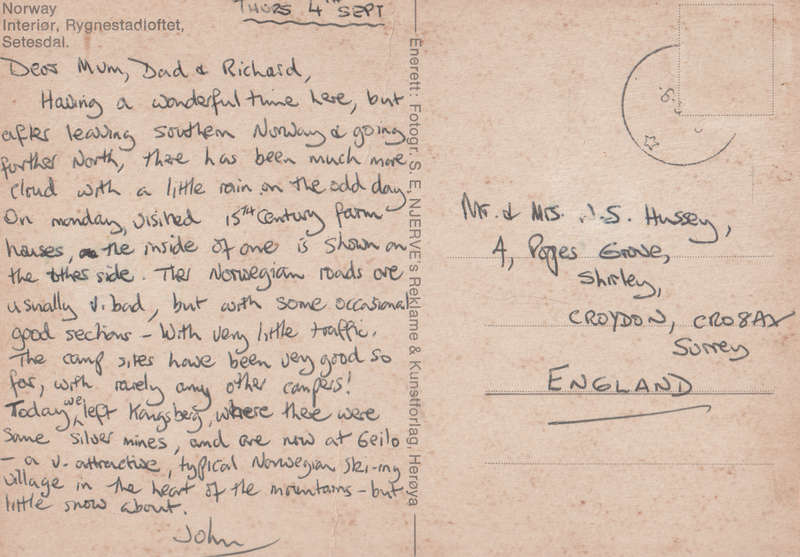 Norway
Interiør, Rygnestadloftet,
Setesdal.
THURS 4TH SEPT
Dear Mum, Dad & Richard,
Having a wonderful time here, but
after leaving southern Norway & going
further North, there has been much more
cloud with a little rain on the odd day.
On monday, visited 15TH Century farm
houses, the inside of one is shown on
the other side. The Norwegian roads are
usually v. bad, but with some occasional
good sections - With very little traffic.
The camp sites have been very good so
far, with rarely any other campers!
Today we left Kongsberg, where there were
some silver mines, and are now at Geilo
- a v. attractive, typical Norwegian ski-ing
village in the heart of the mountains - but
little snow about.
John
Enerett: Fotogr. S. E. NJERVE's Reklame & Kunstforlag, Herøya
Mr. & Mrs. J.S. Hussey,
4, Pages Grove,
Shirley,
CROYDON, CRO8AX
Surrey
ENGLAND